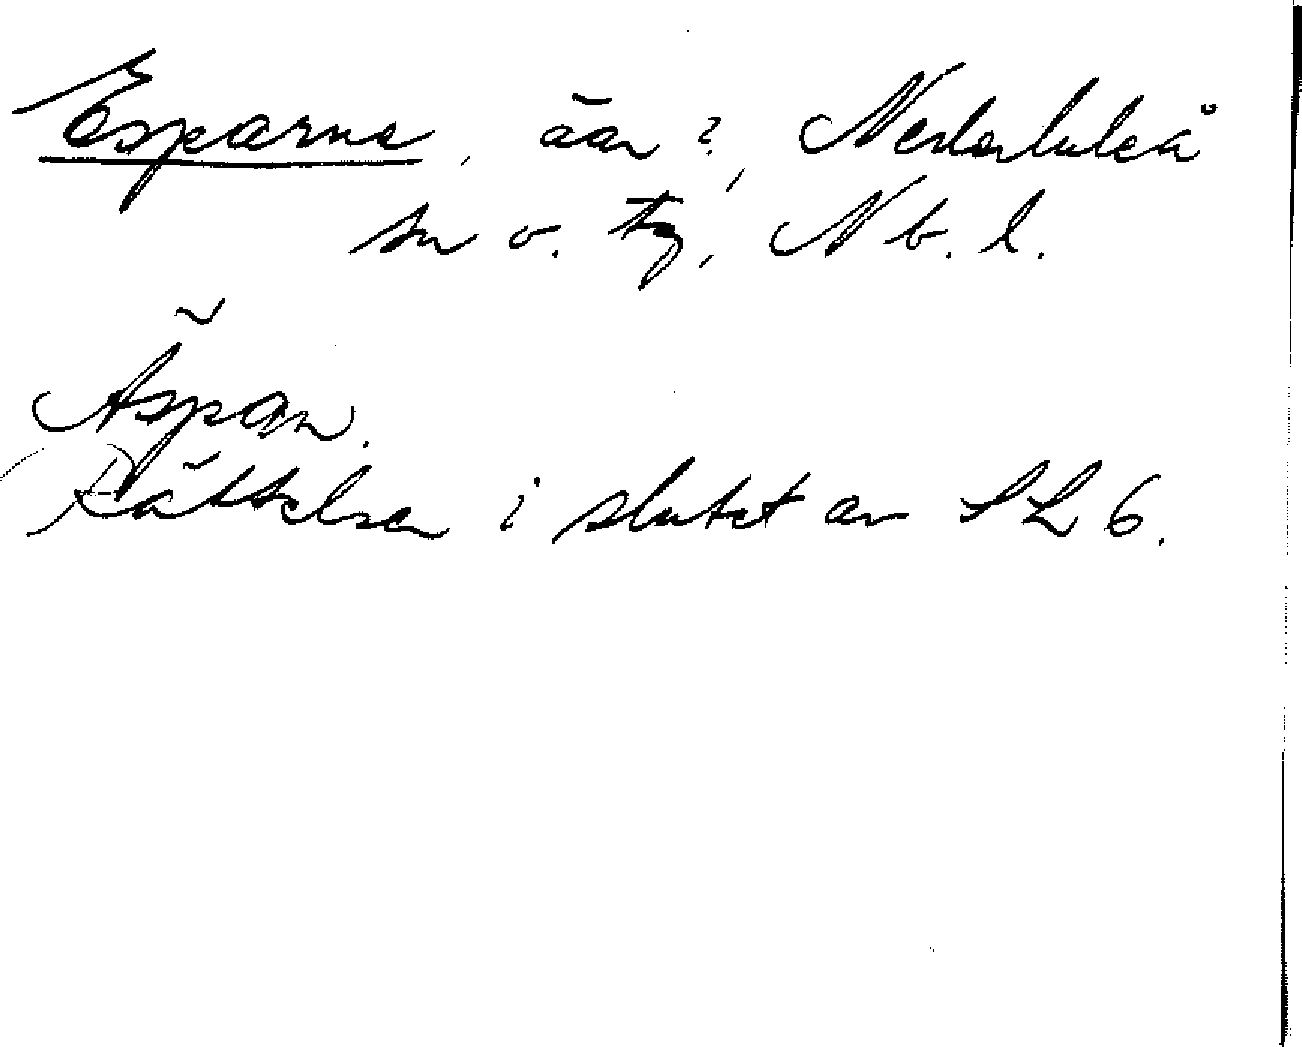 Esparna, öar?, Nederluleå
sn o. tg, Nb. l.
Äspan.
Rättelser i slutet av SL 6.